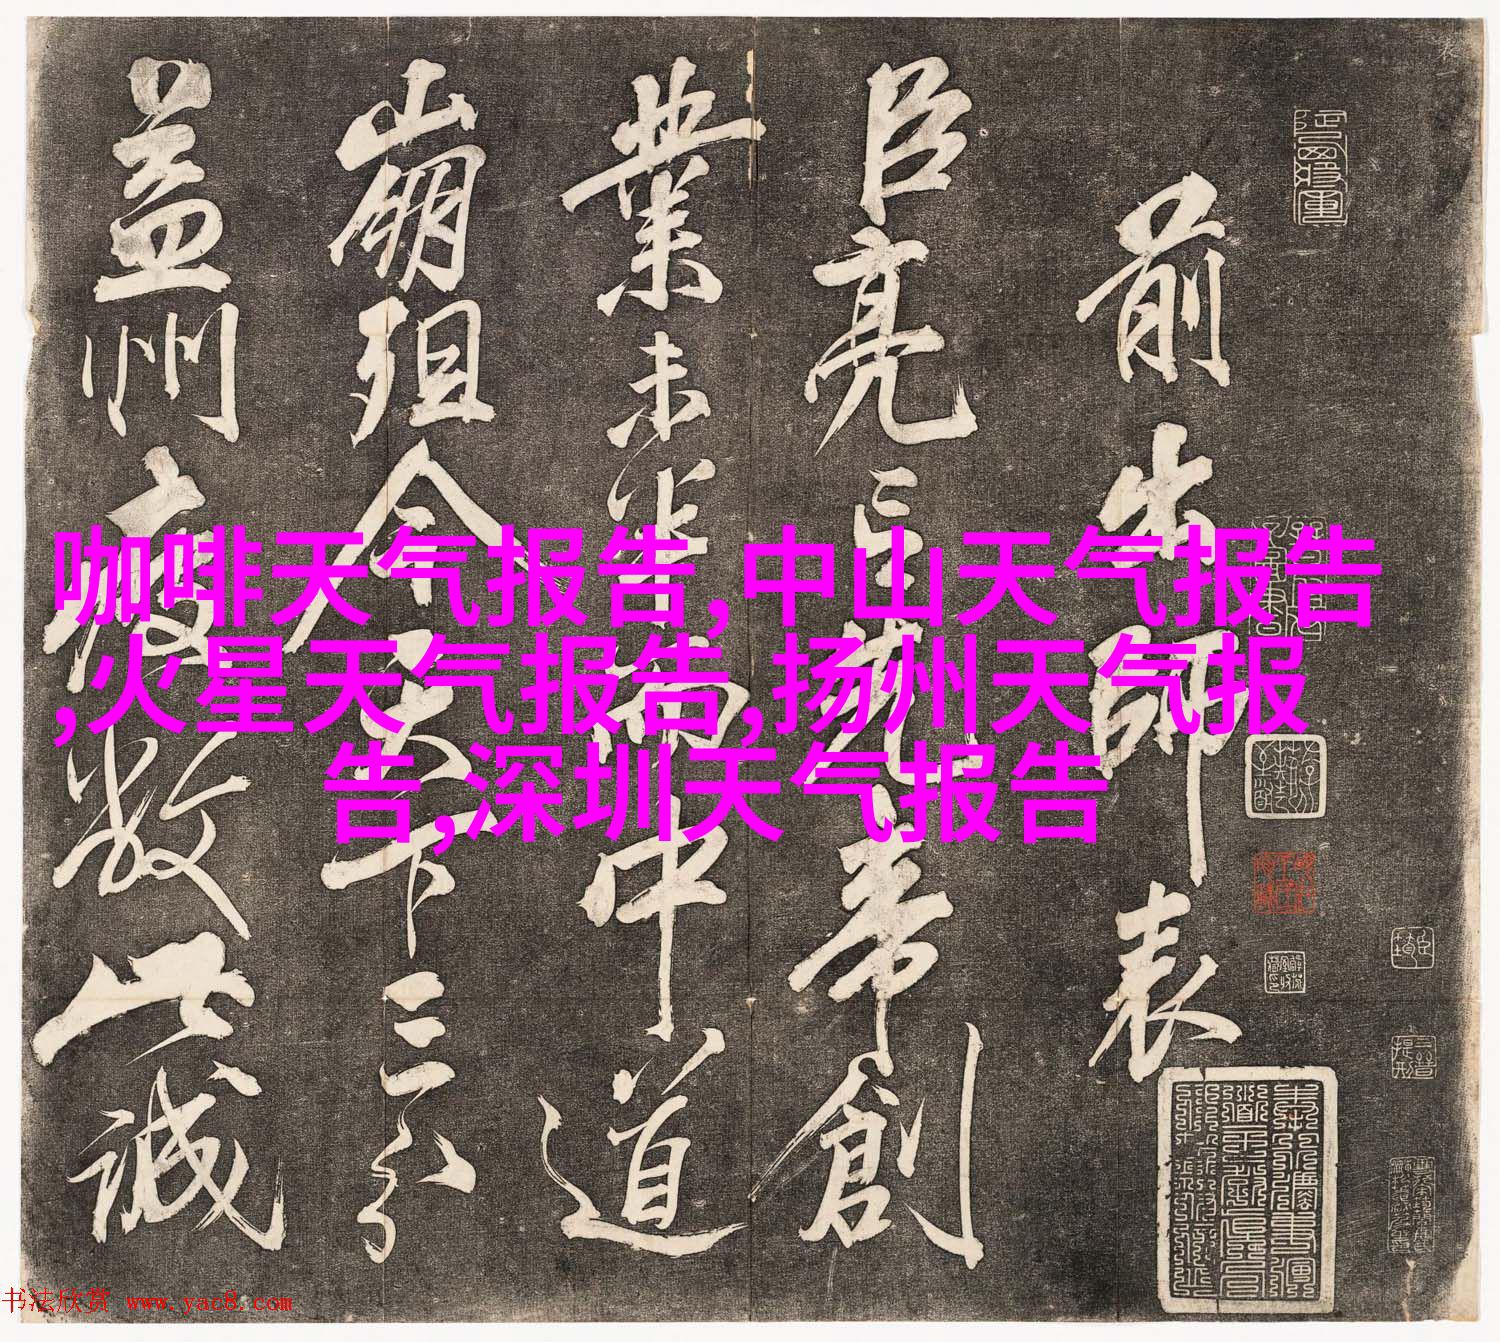 咖啡天气报告,中山天气报告
,火星天气报告,扬州天气报
告,深圳天气报告
前出師表
臣亮言先帝創
業未半而中道
崩殂今天下三分
益州疲敝此誠
書法欣赏 www.yac8.com